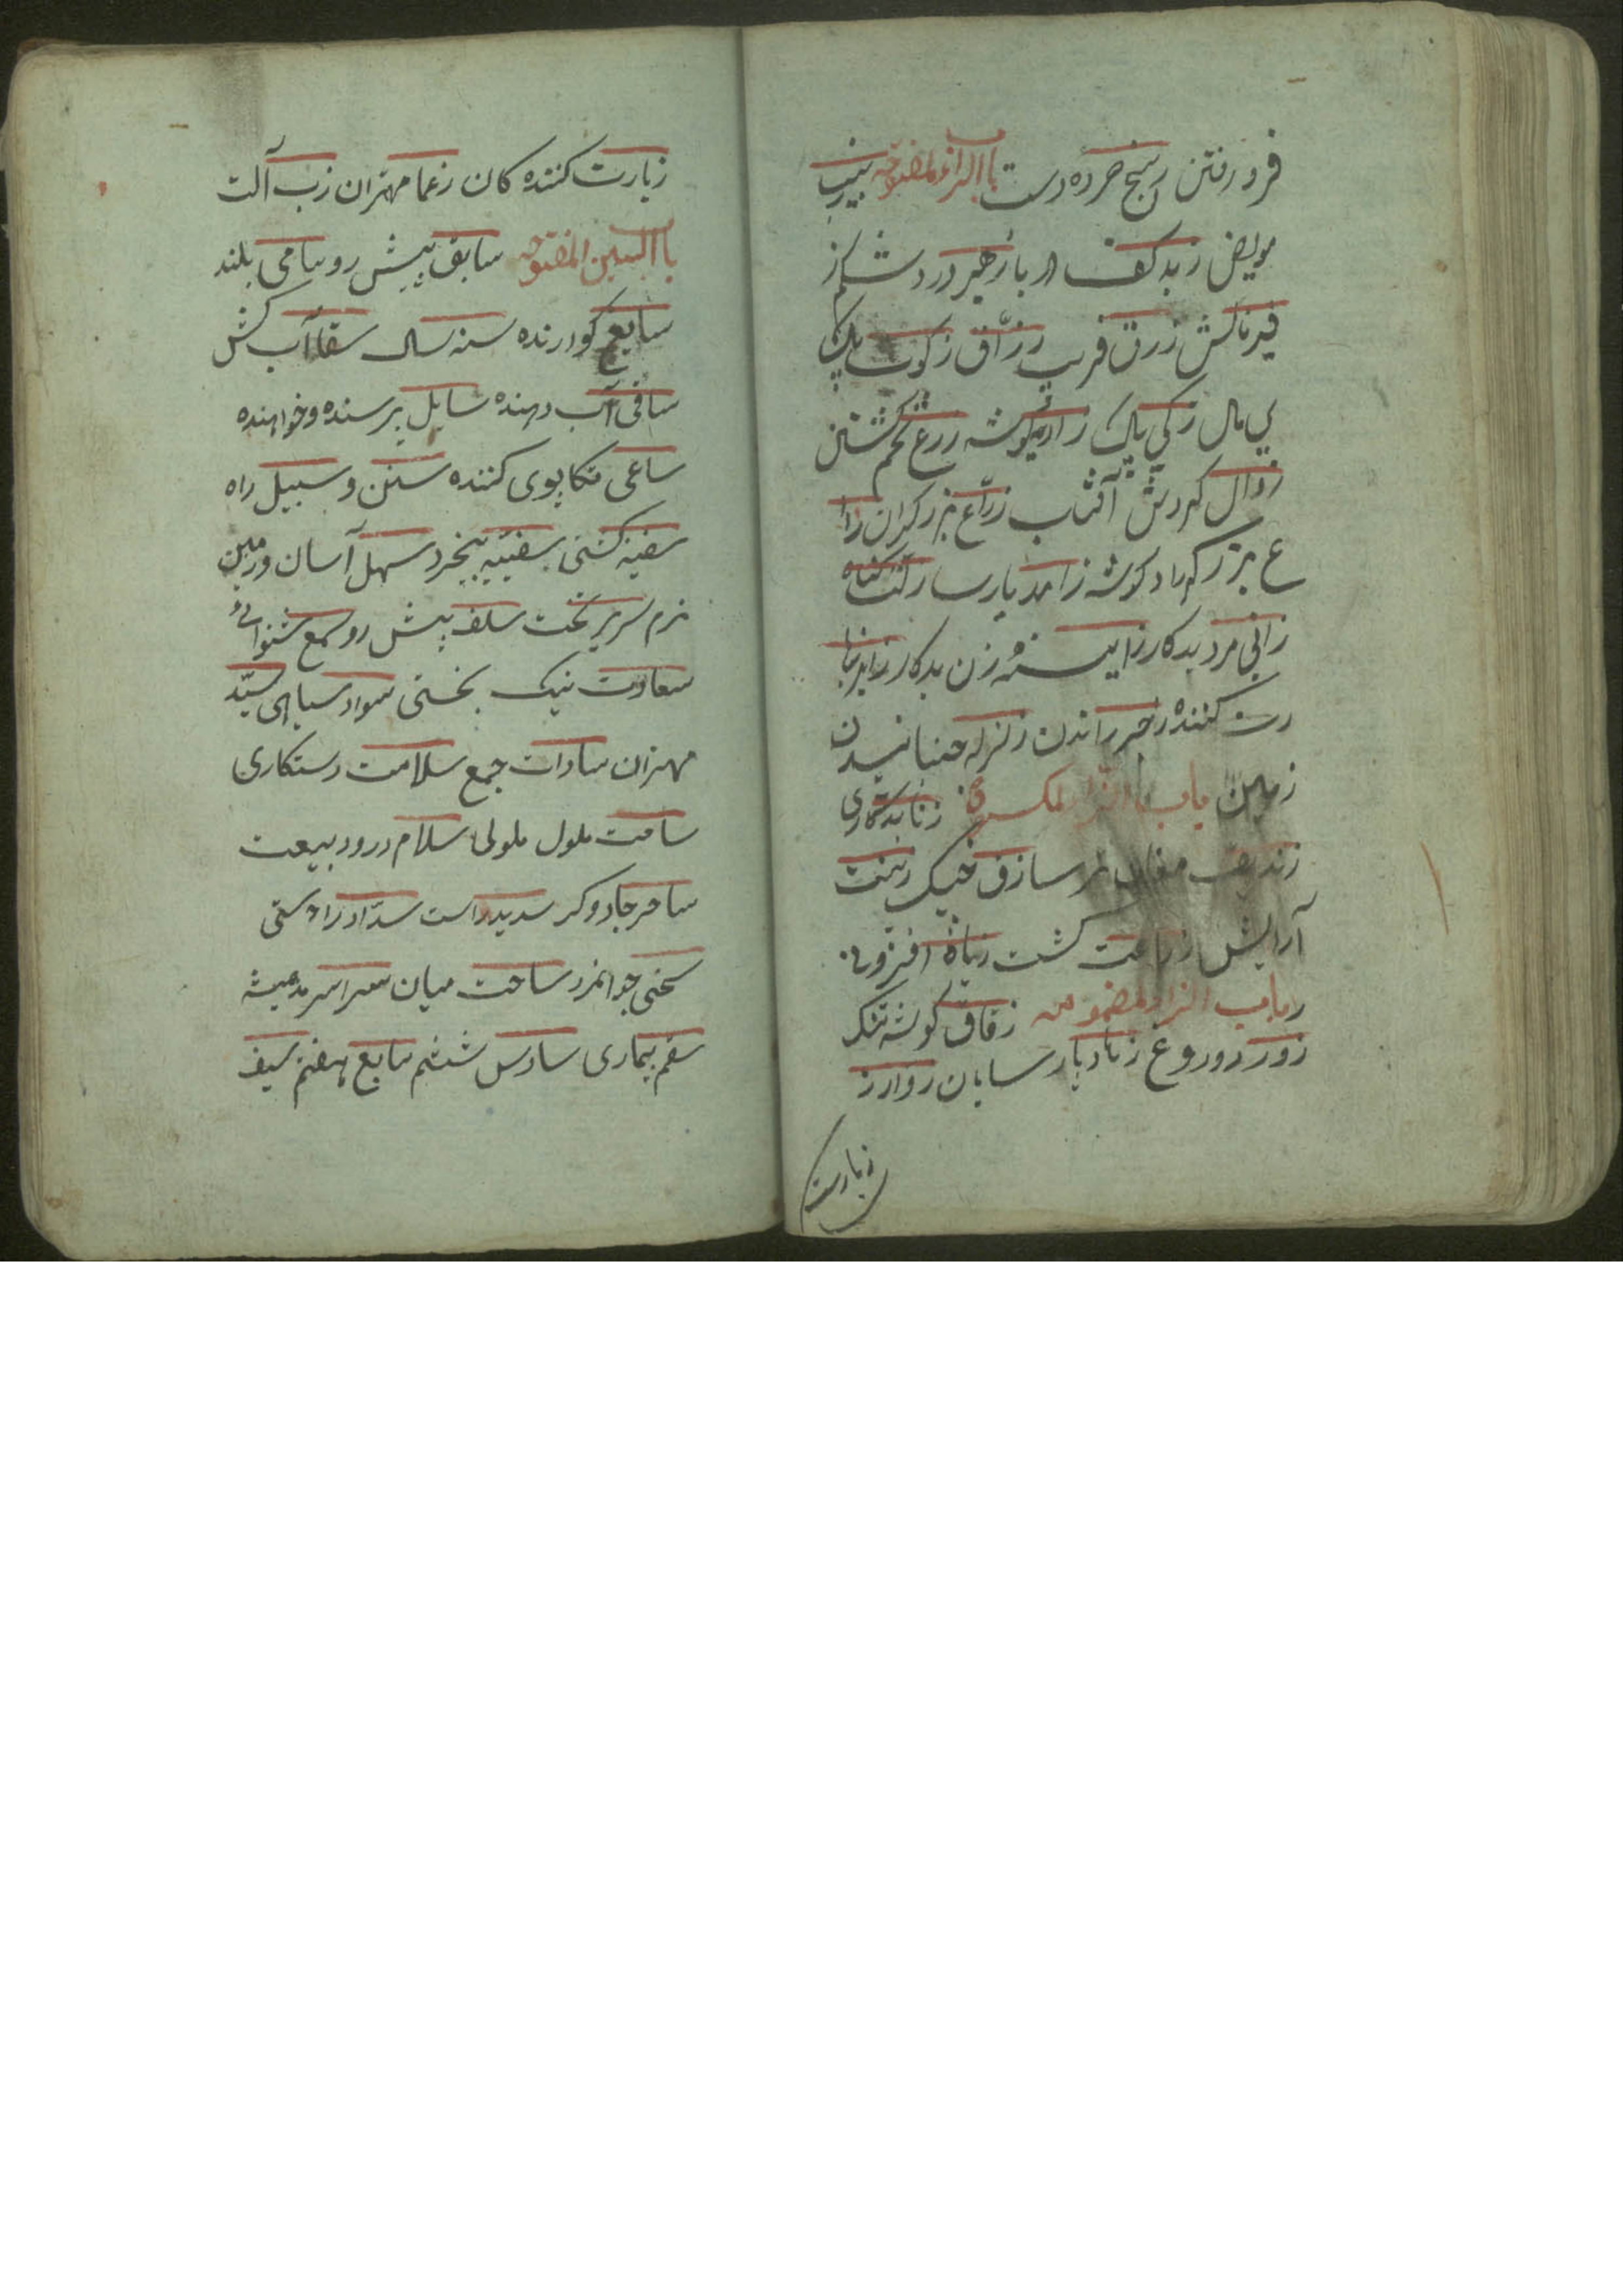 فرو رفتن رسخ خرده دست باالزاء المفتوحه زبیب
مویض زبد کف ار با زحیر درد شکم ز
فیر نالش زرق فریب رزّاق زکوت پاک
ی مال زکی پاک زاد توشه زرع تخم کشتن
زوال کردش آفتاب زرّاع بزرکران زا
ع بزرکر زاد کوشه زاهد پارسا زلت کناه
زانی مرد بدکار زانیه زن بدکار زایر زیا
رت کننده زجر راندن زلزله جنبانیدن
زمین باب الزاء المکسوره زنا بدکاری
زندیق مغان زق خیک زینت
آرایش زراعت کشت زیاده افزونی
باب الزاء المضمومه زقاق کوشه تنک
زور دوروغ زهاد پارسایان زوار ز
زیارت
زیارت کننده کان زعما مهتران زب آلت
باالسین المفتوحه سابق پیش رو سامی بلند
سایغ کوارنده سنه سال سقا آب کش
ساقی آب دهنده سایل پرسنده و خواهنده
ساعی تکاپوی کننده سنن و سبیل راه
سفینه کشتی سفیه بیخرد سهل آسان و زمین
نرم سریر تخت سلف پیش رو سمع شنوائی
سعادت نیک بختی سواد سیاهی سیّد
مهتران سادات جمع سلامت رستکاری
سامت ملول ملولی سلام درود بیعت
ساحر جادوکر سدید راست سداد راستی
سخی جوانمرد ساحت میان سرا سرمد همیشه
سقم بیماری سادس ششم سابع هفتم سیف